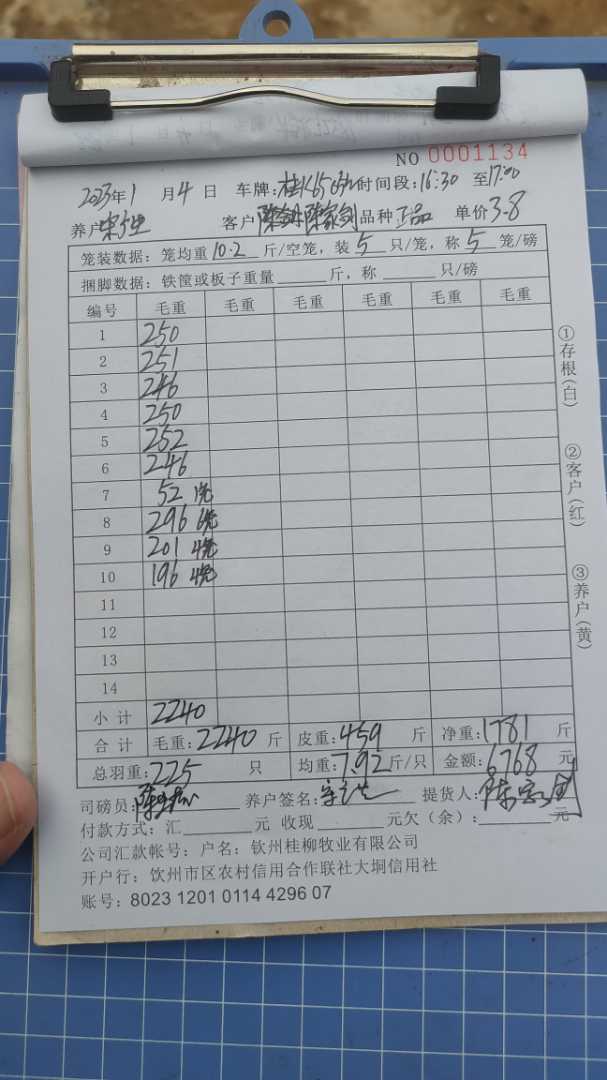 NO 0001134
2023年1月4日 车牌:桂 时间段:16:30 至17:00
养户 客户 陈家剑 品种 正品 单价3.8
笼装数据：笼均重10.2斤/空笼，装5只/笼，称5笼/磅
捆脚数据：铁筐或板子重量 斤，称 只/磅
编号 毛重 毛重 毛重 毛重 毛重 毛重
1 250
2 251
3 246
4 250
5 252
6 246
7 52 1笼
8 296 6笼
9 201 4笼
10 196 4笼
11
12
13
14
小计 2240
合计 毛重:2240斤 皮重:459斤 净重:1781斤
总羽重:225只 均重:7.92斤/只 金额:6768元
司磅员: 养户签名: 提货人:陈家剑
付款方式：汇 元 收现 元欠（余）: 元
公司汇款帐号：户名：钦州桂柳牧业有限公司
开户行：饮州市区农村信用合作联社大垌信用社
账号：8023 1201 0114 4296 07
①存根(白)
②客户(红)
③养户(黄)